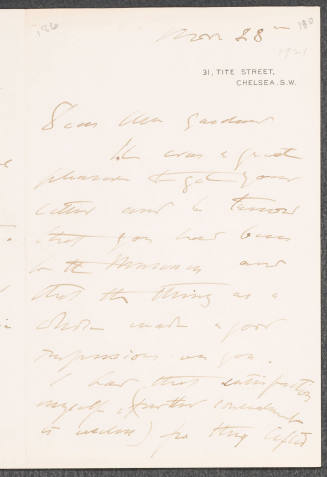 186
180
Nov 28
1921
31, TITE STREET,
CHELSEA. S.W.
Dear Mrs Gardner
It was a great
pleasure to get your
letter and to know
that you had been
to the Museum and
that the thing as a
whole made a good
impression on you.
I had that satisfaction
myself, (further
is useless) for they lifted